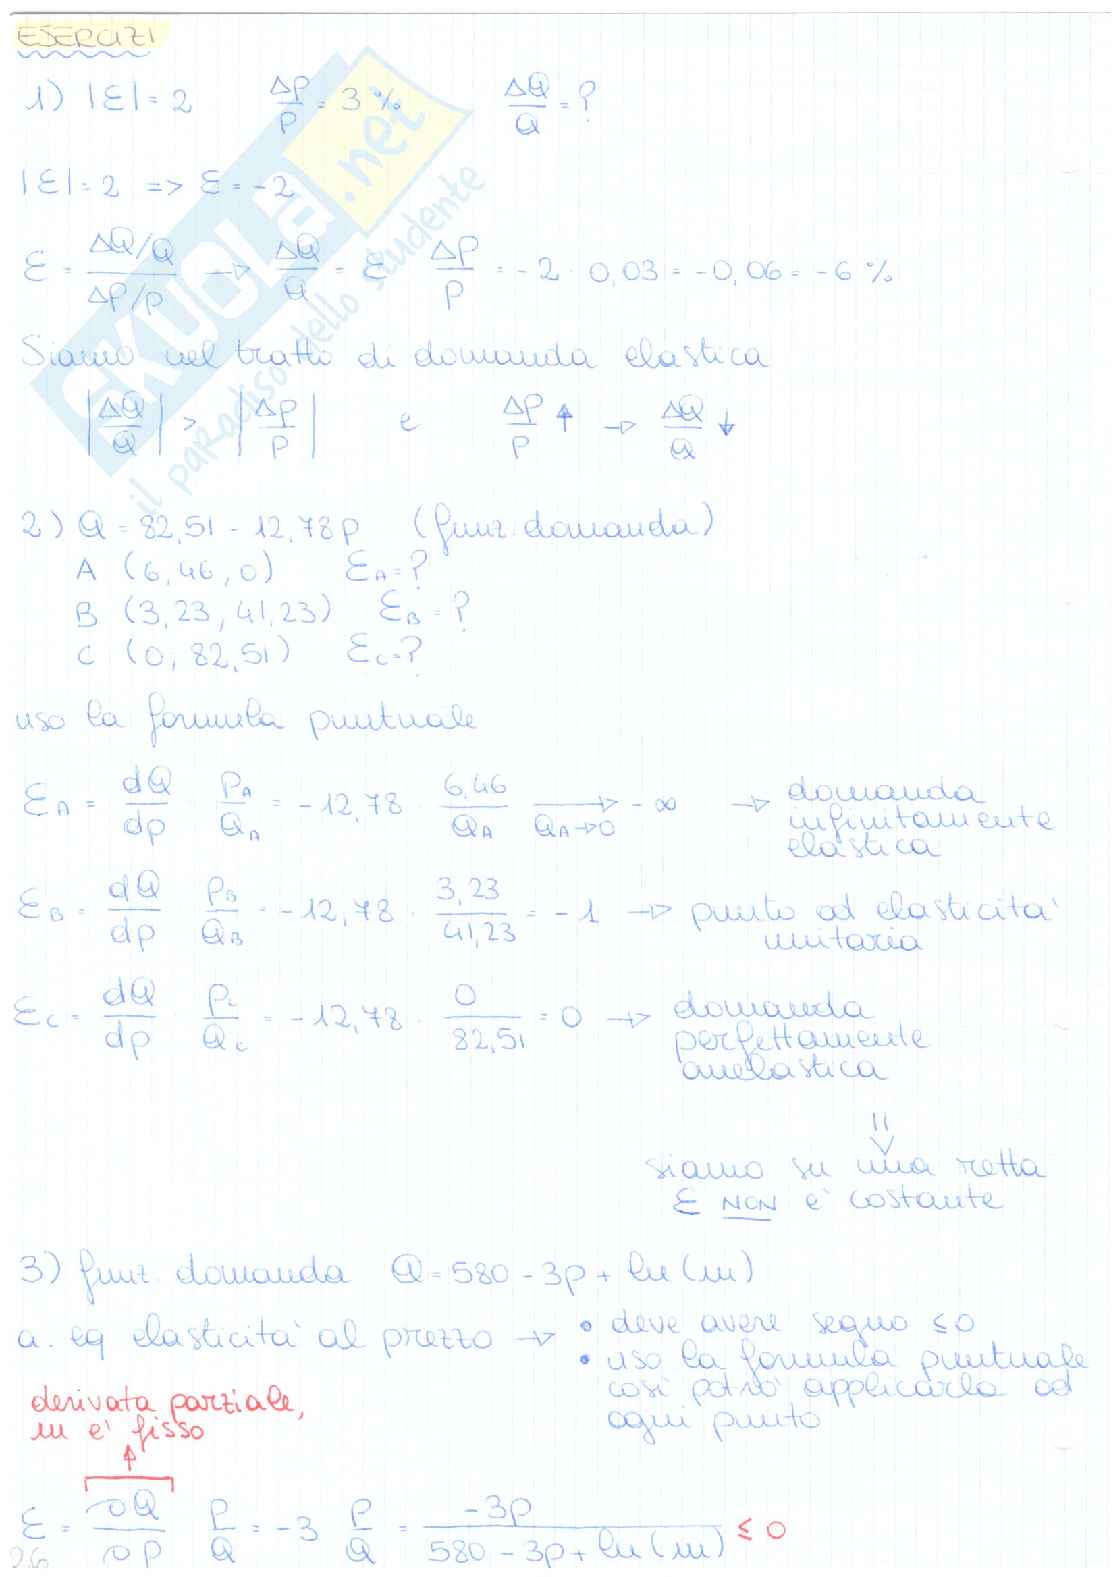 ESERCIZI
1) |ε| = 2   ΔP/P = 3 %   ΔQ/Q = ?
|ε| = 2 => ε = -2
ε = (ΔQ/Q)/(ΔP/P) → ΔQ/Q = ε ΔP/P = -2 · 0,03 = -0,06 = -6 %
Siamo nel tratto di domanda elastica
|ΔQ/Q| > |ΔP/P|   e   ΔP/P ↑ → ΔQ/Q ↓
2) Q = 82,51 - 12,78p (funz. domanda)
A (6,46; 0)   εA = ?
B (3,23; 41,23)   εB = ?
C (0; 82,51)   εC = ?
uso la formula puntuale
εA = dQ/dp · PA/QA = -12,78 · 6,46/QA → QA→0 -∞ → domanda
infinitamente
elastica
εB = dQ/dp · PB/QB = -12,78 · 3,23/41,23 = -1 → punto ad elasticità
unitaria
εC = dQ/dp · PC/QC = -12,78 · 0/82,51 = 0 → domanda
perfettamente
anelastica
⇓
siamo su una retta
ε NON è costante
3) funz. domanda Q = 580 - 3p + ln(m)
a. eq elasticità al prezzo → • deve avere segno ≤0
• uso la formula puntuale
così potrò applicarla ad
ogni punto
derivata parziale,
m è fisso
ε = ∂Q/∂P P/Q = -3 P/Q = -3p/(580 - 3p + ln(m)) ≤ 0
SKUOLA.net
il paradiso dello studente